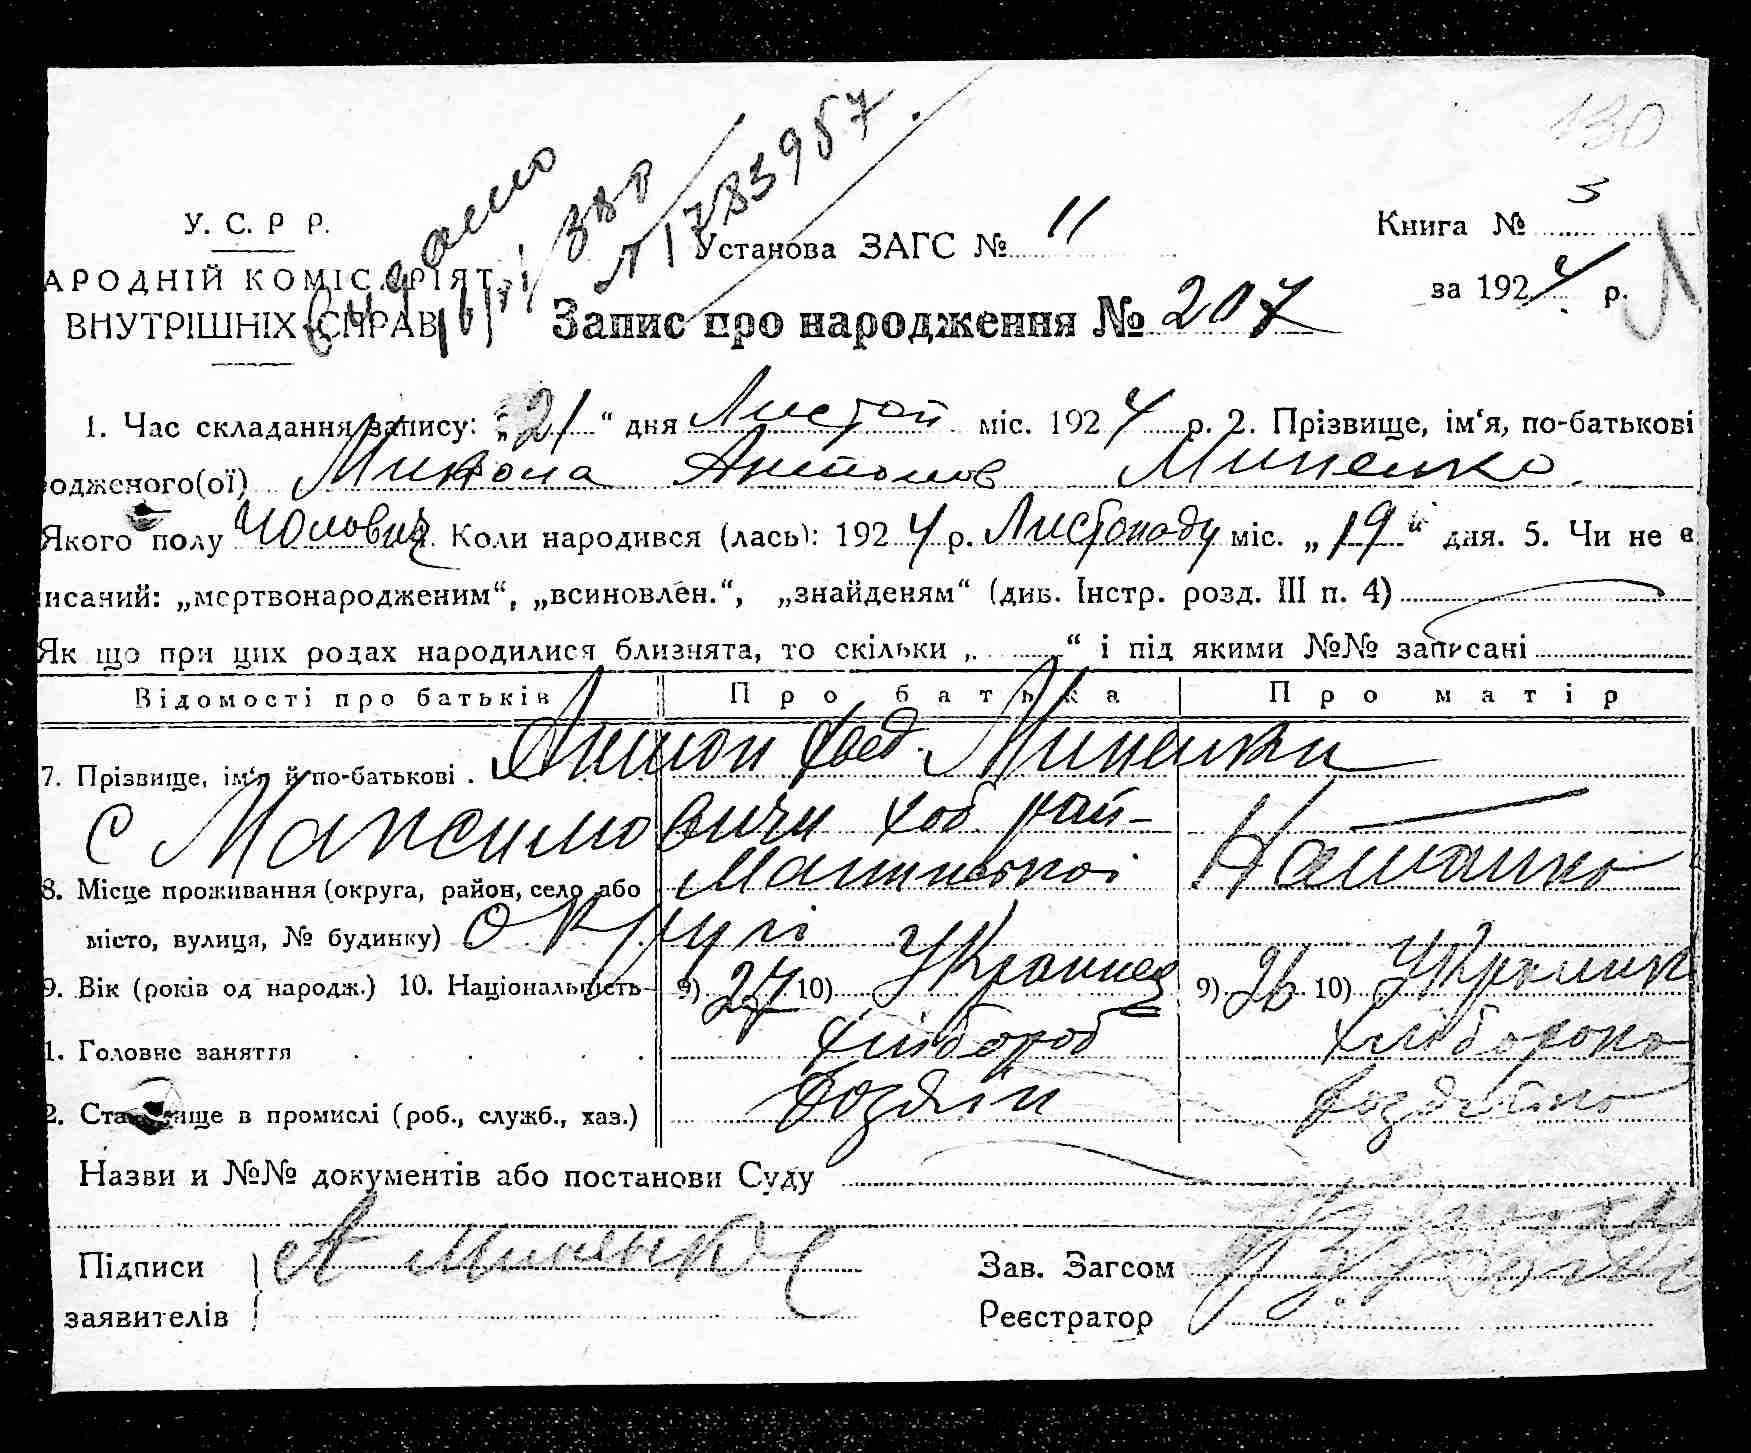 130
Видано
№ 1783957
У. С. Р Р.
АРОДНІЙ КОМІСАРІЯТ
ВНУТРІШНІХ СПРАВ
Установа ЗАГС № 11
Книга № 3
за 1924 р.
Запис про народження № 207
1. Час складання запису: „21“ дня Листоп міс. 1924 р. 2. Прізвище, ім‘я, по-батькові
одженого(ої) Микола Антонов Миненко
Якого полу Чоловіч. Коли народився (лась): 1924 р. Листопаду міс. „19“ дня. 5. Чи не є
исаний: „мертвонародженим“, „всиновлен.“, „знайденям“ (див. Інстр. розд. III п. 4)
Як що при цих родах народилися близнята, то скільки „ “ і під якими №№ записані
Відомості про батьків Про батька Про матір
7. Прізвище, ім‘я й по-батькові . Антон Фед. Миненки
с Максимовичи Хаб рай-
8. Місце проживання (округа, район, село або Наталка
місто, вулиця, № будинку) округі
9. Вік (років од народж.) 10. Національність 9) 27 10) Українец 9) 26 10) Українк
1. Головне заняття хлібороб хлібороб
2. Становище в промислі (роб., служб., хаз.) Хозяїн Хозяйка
Назви и №№ документів або постанови Суду
Підписи А Миненко
заявителів
Зав. Загсом
Реєстратор